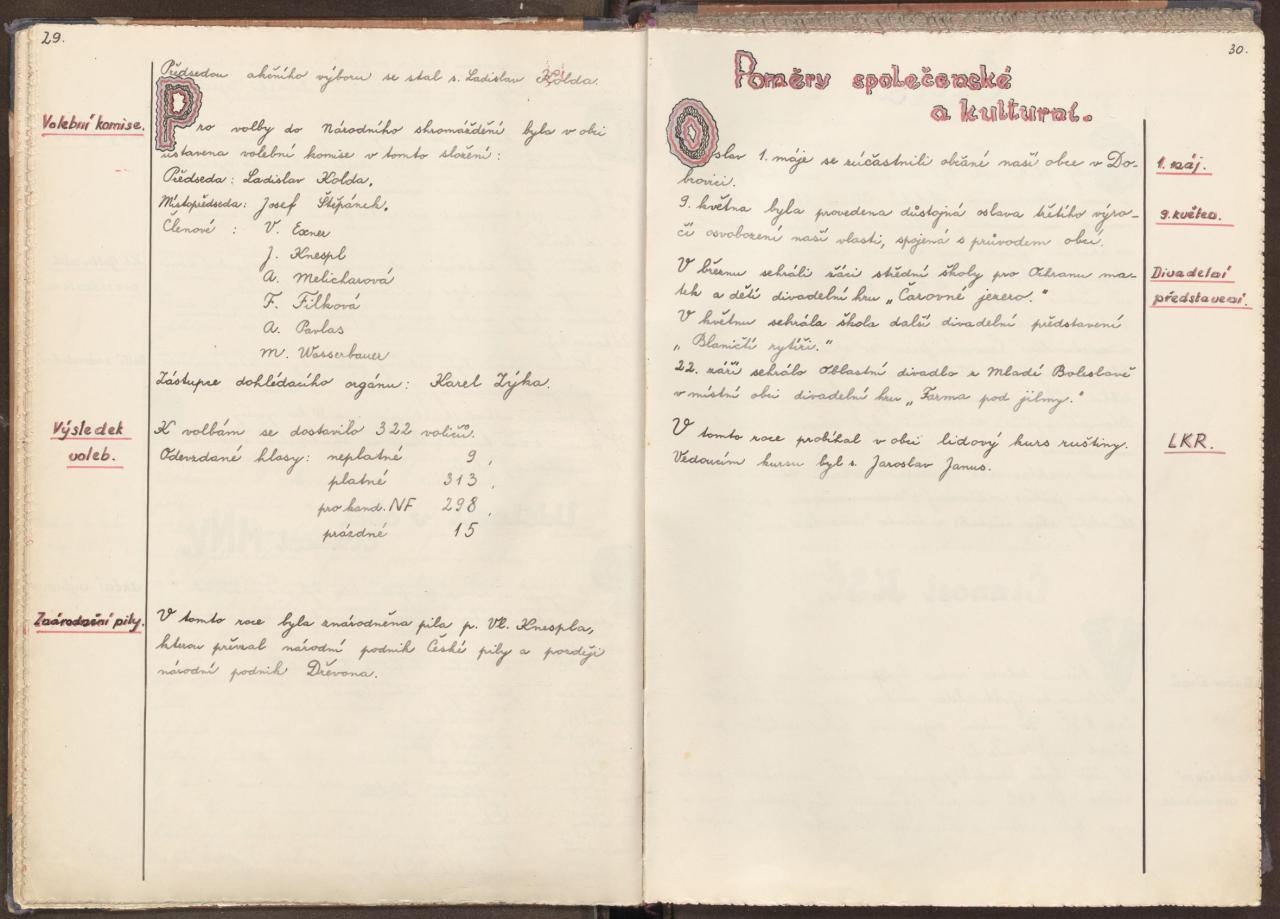 29.
Předsedou akčního výboru se stal s. Ladislav Kolda.
Volební komise.
Pro volby do Národního shromáždění byla v obci
ustavena volební komise v tomto složení:
Předseda: Ladislav Kolda.
Místopředseda: Josef Štěpánek.
Členové : V. Exner
J. Knespl
A. Melicharová
F. Filková
A. Pavlas
M. Wasserbauer
Zástupce dohlédacího orgánu: Karel Zýka.
Výsledek
voleb.
K volbám se dostavilo 322 voličů.
Odevzdané hlasy: neplatné 9,
platné 313,
pro kand. NF 298,
prázdné 15
Znárodnění pily.
V tomto roce byla znárodněna pila p. Vl. Knespla,
kterou převzal národní podnik České pily a později
národní podnik Dřevona.
30.
Poměry společenské
a kulturní.
Oslav 1. máje se zúčastnili občané naší obce v Do-
brovici.
1. máj.
9. května byla provedena důstojná oslava třetího výro-
čí osvobození naší vlasti, spojená s průvodem obcí.
9. květen.
V březnu sehráli žáci střední školy pro Ochranu ma-
tek a dětí divadelní hru „Čarovné jezero."
Divadelní
představení.
V květnu sehrála škola další divadelní představení
„Blaničtí rytíři."
22. září sehrálo Oblastní divadlo z Mladé Boleslavě
v místní obci divadelní hru „Farma pod jilmy."
V tomto roce probíhal v obci lidový kurs ruštiny.
Vedoucím kursu byl s. Jaroslav Janus.
LKR.